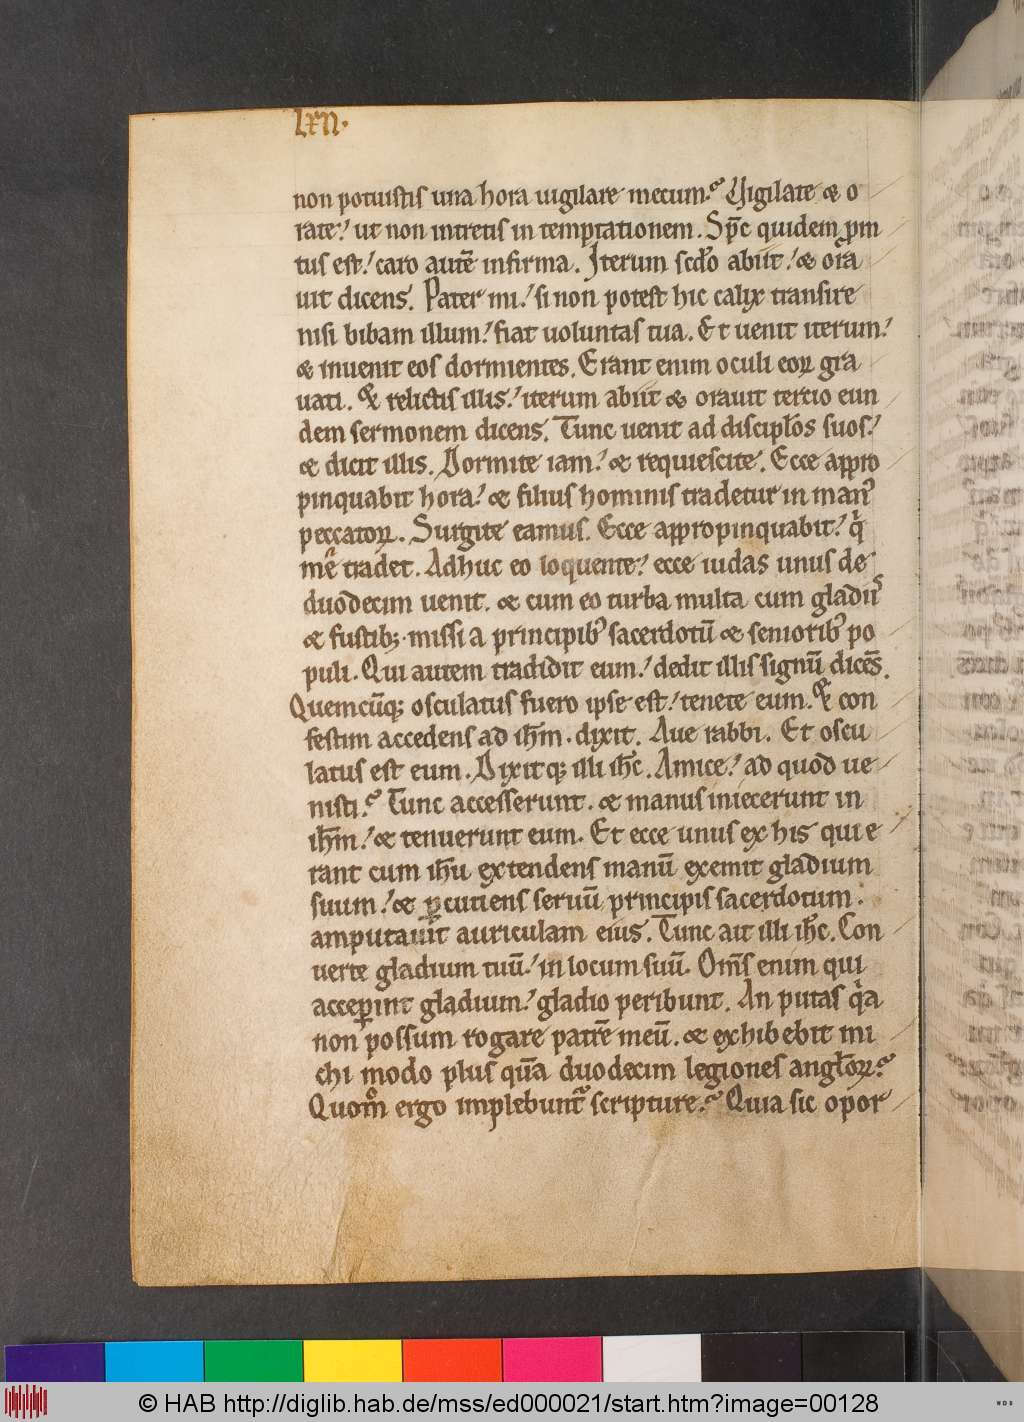 lxii.
non potuistis una hora uigilare mecum? Uigilate & o
rate! ut non intretis in temptationem. Sp̄c quidem prm
tus est! caro autē infirma. Iterum scdo abiit! & ora
uit dicens. Pater mi! si non potest hic calix transire
nisi bibam illum! fiat uoluntas tua. Et uenit iterum!
& inuenit eos dormientes. Erant enim oculi eoꝝ gra
uati. & relictis illis! iterum abiit & orauit tertio eun
dem sermonem dicens. Tunc uenit ad discipłos suos!
& dicit illis. Dormite iam! & requiescite. Ecce appro
pinquabit hora! & filius hominis tradetur in manꝰ
peccatoꝝ. Surgite eamus. Ecce appropinquabit! q̇
mē tradet. Adhuc eo loquente! ecce iudas unus de
duodecim uenit. & cum eo turba multa cum gladiis
& fustibꝫ. missi a principibꝰ sacerdotū & senioribꝰ po
puli. Qui autem tradidit eum! dedit illis signū dicēs.
Quemcūqꝫ osculatus fuero ipse est! tenete eum. & con
festim accedens ad ih̄m. dixit. Aue rabbi. Et oscu
latus est eum. Dixitqꝫ illi ih̄c. Amice! ad quod ue
nisti? Tunc accesserunt. & manus iniecerunt in
ih̄m! & tenuerunt eum. Et ecce unus ex his qui e
rant cum ih̄u extendens manū exemit gladium
suum! & ꝑcutiens seruū principis sacerdotum
amputauit auriculam eius. Tunc ait illi ih̄c. Con
uerte gladium tuū! in locum suū. Om̄s enim qui
acceꝑint gladium! gladio peribunt. An putas qa
non possum rogare patrē meū. & exhibebit mi
chi modo plus quā duodecim legiones angłoꝝ?
Quom̊ ergo implebunt̄ scripture? Quia sic opor
© HAB http://diglib.hab.de/mss/ed000021/start.htm?image=00128